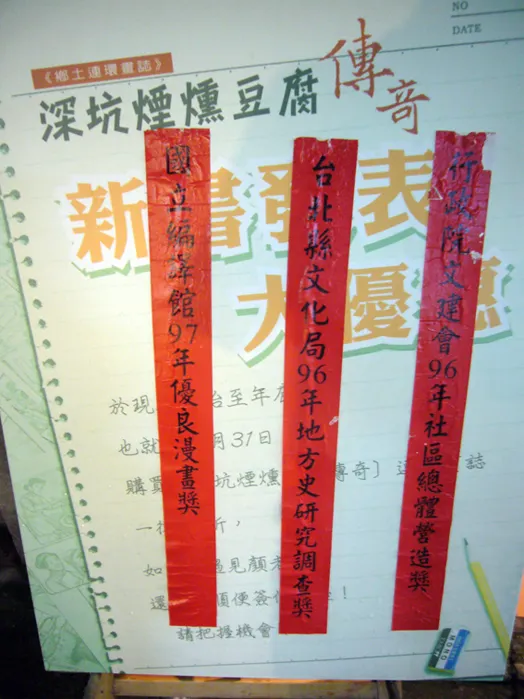 NO
DATE
《鄉土連環畫誌》
深坑煙燻豆腐
傳奇
新書發表
大優惠
行政院文建會96年社區總體營造獎
台北縣文化局96年地方史研究調查獎
國立編譯館97年優良漫畫獎
於現 台至年底
也就 月31日
購買 坑煙燻 傳奇〕 這 誌
一 折，
如 遇見顏老
還 順便簽 ！
請把握機會